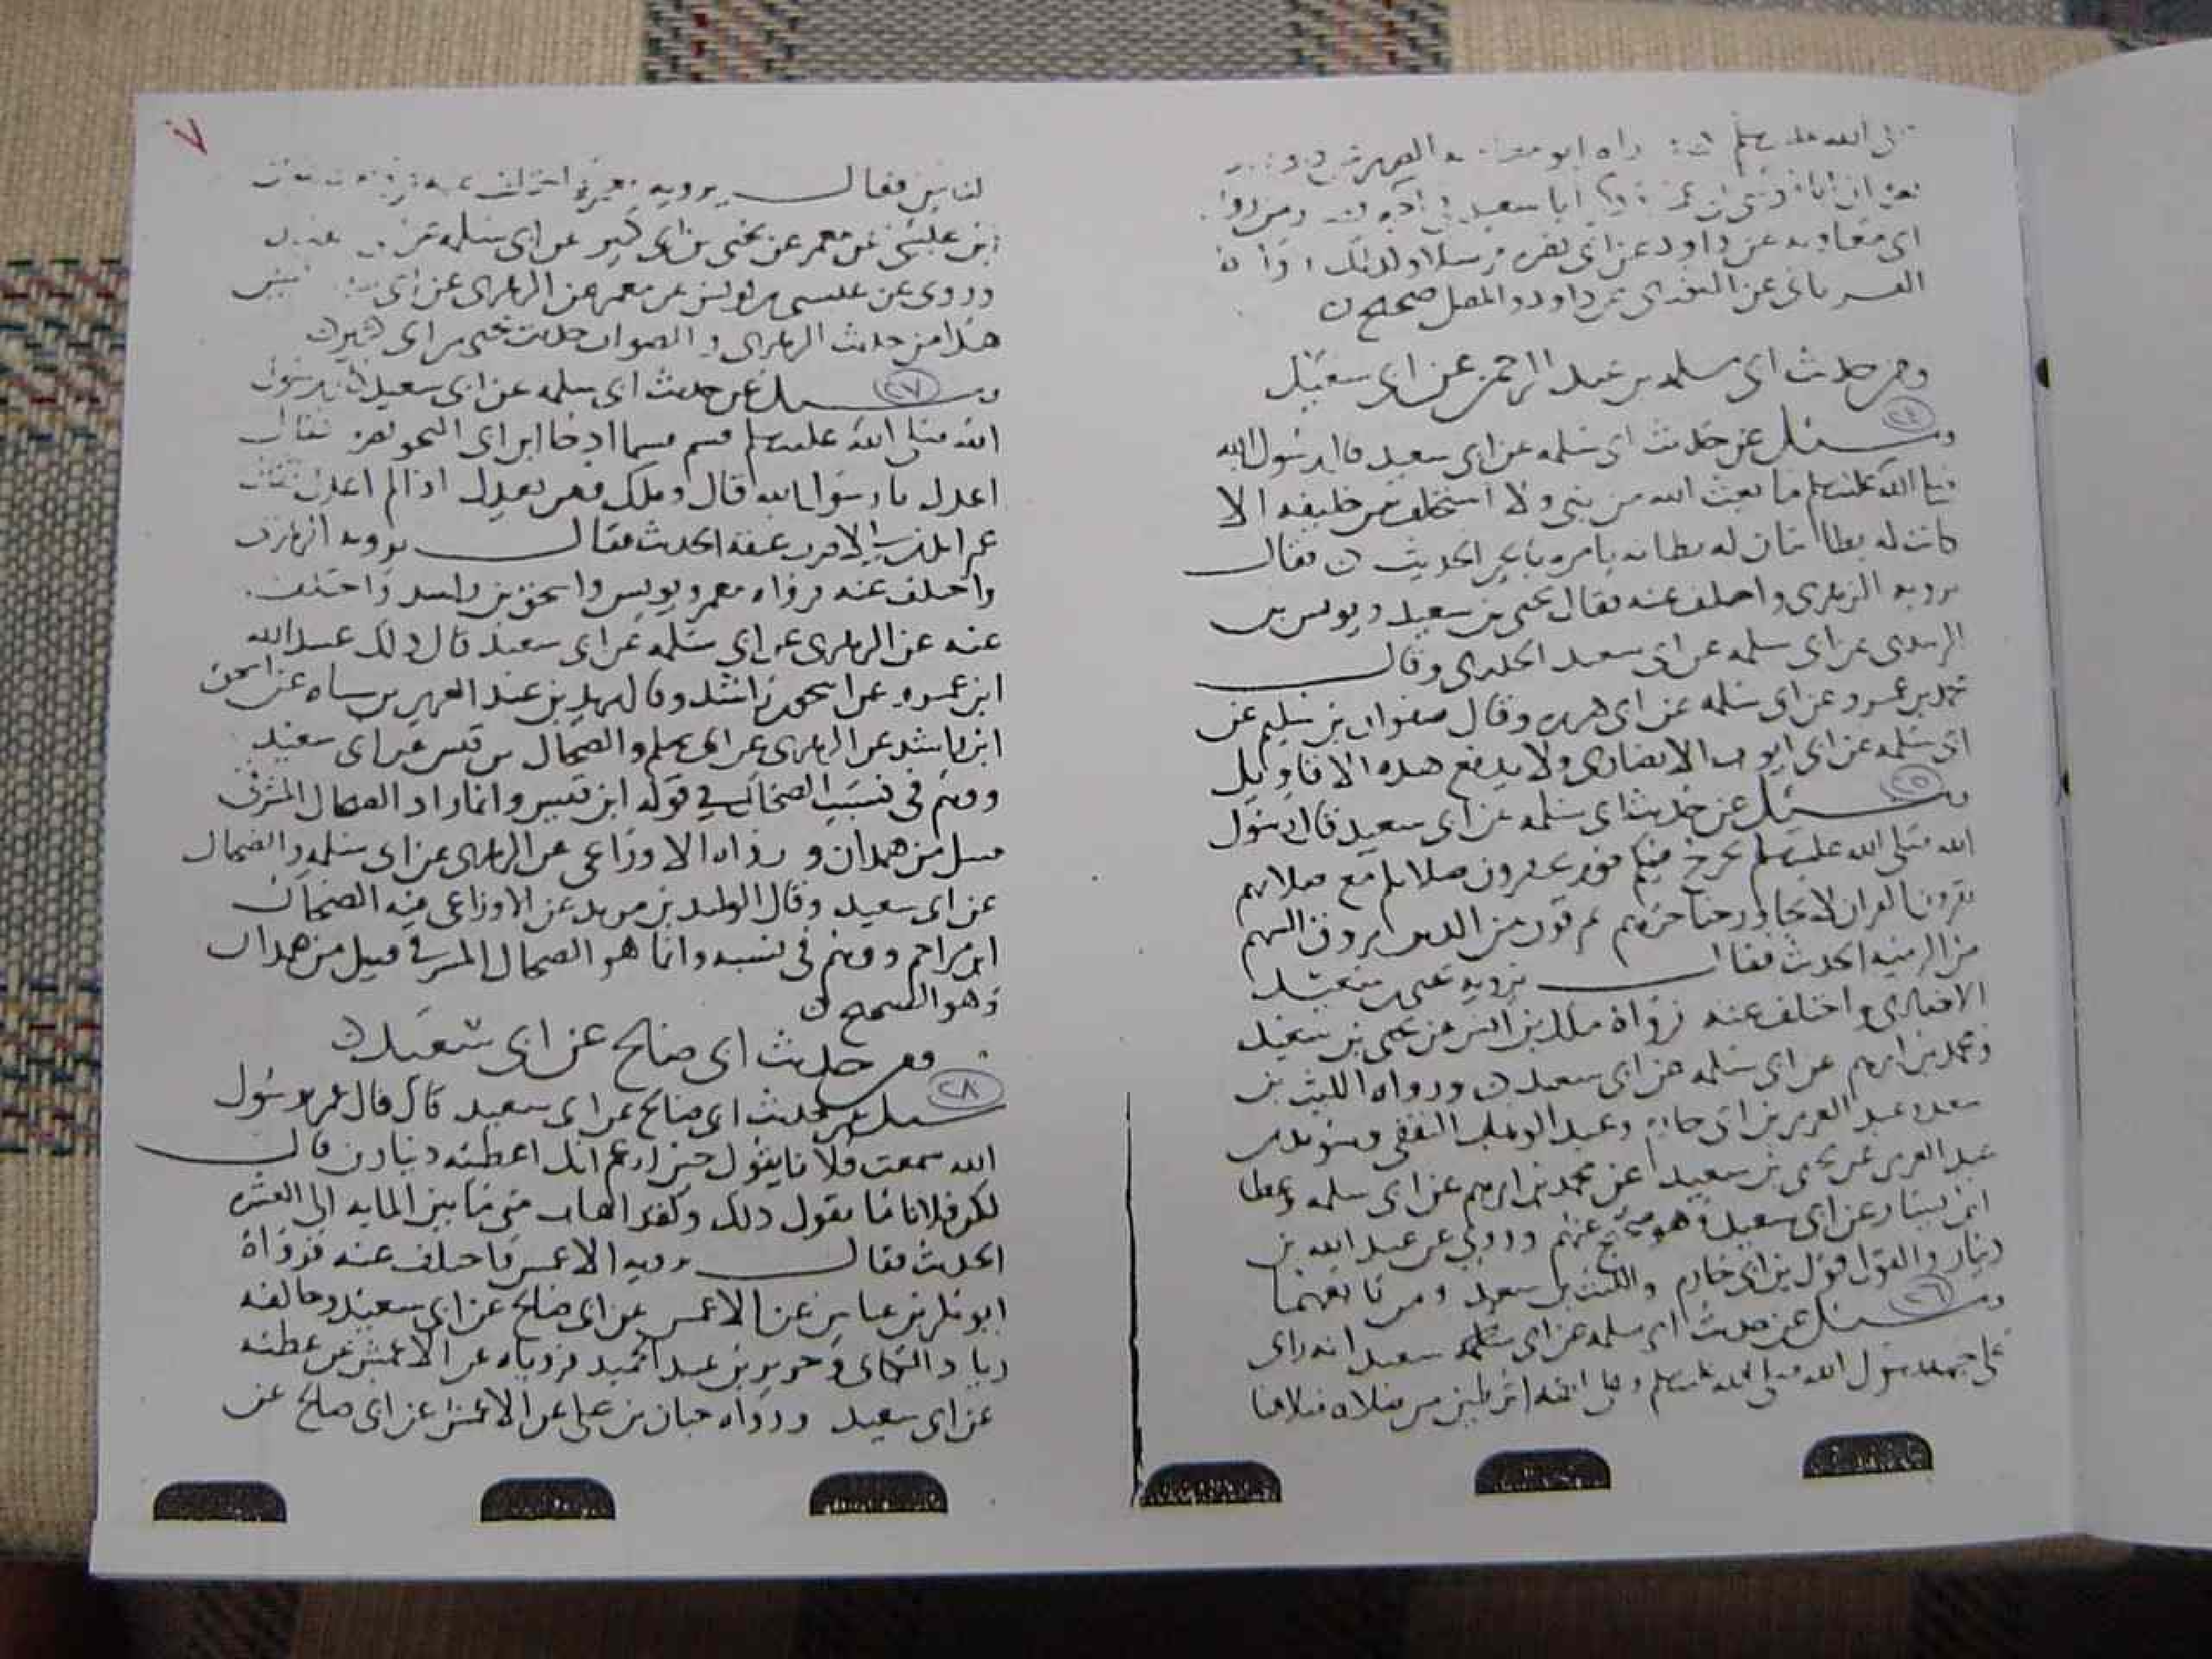 صلى الله عليه وسلم
ابا سعيد
ابى معاويه عن داود عن ابى نضره مرسلا وكذلك
الفريابى عن الثورى عن داود والمتصل صحيح ن
ومن حديث ابى سلمه بن عبد الرحمن عن ابى سعيد
٢٤
وسئل عن حديث ابى سلمه عن ابى سعيد قال رسول الله
صلى الله عليه وسلم ما بعث الله من نبى ولا استخلف من خليفه الا
كانت له بطانتان له بطانه يامره بالخير الحديث ن فقال
يرويه الزهرى واختلف عنه فقال يحيى بن سعيد ويونس بن
الزهرى عن ابى سلمه عن ابى سعيد الخدرى وقال
محمد بن عمرو عن ابى سلمه عن ابى هريره وقال صفوان بن سليم عن
ابى سلمه عن ابى ايوب الانصارى ولا يدفع هذه الاقاويل
٢٥
وسئل عن حديث ابى سلمه عن ابى سعيد قال رسول
الله صلى الله عليه وسلم يخرج فيكم قوم تحقرون صلاتكم مع صلاتهم
يقرون القران لا يجاوز حناجرهم يمرقون من الدين مروق السهم
من الرميه الحديث فقال يرويه يحيى بن سعيد
الانصارى واختلف عنه فرواه ملك بن انس عن يحيى بن سعيد
ومحمد بن ابرهيم عن ابى سلمه عن ابى سعيد ن ورواه الليث بن
سعد وعبد العزيز بن ابى حازم وعبد الوهاب الثقفى وسويد بن
عبد العزيز عن يحيى بن سعيد عن محمد بن ابرهيم عن ابى سلمه وعطا
ابن يسار عن ابى سعيد وهو صحيح عنهم وروى عن عبد الله بن
دينار والقول قول بن ابى حازم والليث بن سعيد ومن تابعهما
٢٦
وسئل عن حديث ابى سلمه عن ابى سلمه سعيد انه راى
على جبهه رسول الله صلى الله عليه وسلم وعلى انفه اثر طين من صلاه صلاها
٧
لناس فقال يرويه
ابن عيسى عن معمر عن يحيى بن ابى كثير عن ابى سلمه
وروى عن عيسى بن يونس عن معمر عن الزهرى عن ابى
هذا من حديث الزهرى والصواب حديث يحيى بن ابى كثير ن
٢٧
وسئل عن حديث ابى سلمه عن ابى سعيد ان رسول
الله صلى الله عليه وسلم قسم قسما اذ جا ابن ابى الخويصره فقال
اعدل يا رسول الله قال ويلك ومن يعدل اذا لم اعدل فقال
عمر ايذن لى الاضرب عنقه الحديث فقال يرويه الزهرى
واختلف عنه فرواه معمر ويونس واسحق بن راشد واختلف
عنه عن الزهرى عن ابى سلمه عن ابى سعيد قال ذلك عبيد الله
ابن عمرو عن اسحق بن راشد وقال يزيد بن عبد العزيز بن سياه عن اسحق
ابن راشد عن الزهرى عن ابى سلمه والضحاك بن قيس عن ابى سعيد
ووهم فى نسب الضحاك فى قوله ابن قيس وانما اراد الضحاك المشرقى
قبيل من همدان ورواه الاوزاعى عن الزهرى عن ابى سلمه والضحاك
عن ابى سعيد وقال الوليد بن مزيد عن الاوزاعى فيه الضحاك
ابن مزاحم ووهم فى نسبه وانما هو الضحاك المشرقى قبيل من همدان
وهو الصحيح ن
ومن حديث ابى صالح عن ابى سعيد ن
٢٨
وسئل عن حديث ابى صالح عن ابى سعيد قال قال عمر يا رسول
الله سمعت فلانا يقول خيرا زعم انك اعطيته دينارين قال
لكن فلانا ما يقول ذلك ولقد اصاب منى ما بين المايه الى العشره
الحديث فقال يرويه الاعمش واختلف عنه فرواه
ابو بكر بن عياش عن الاعمش عن ابى صالح عن ابى سعيد وخالفه
زياد البكاى وجرير بن عبد الحميد فروياه عن الاعمش عن عطيه
عن ابى سعيد ورواه حبان بن على عن الاعمش عن ابى صالح عن